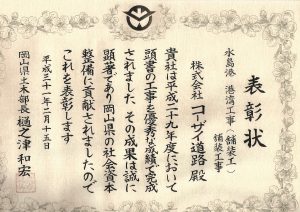 表彰状
水島港 港湾工事(舗装工)
舗装工事
株式会社 コーザイ道路 殿
貴社は平成二十九年度において
頭書の工事を優秀な成績で完成
されました その成果は誠に
顕著であり岡山県の社会資本
整備に貢献されましたので
これを表彰します
平成三十一年二月十五日
岡山県土木部長 樋之津和宏